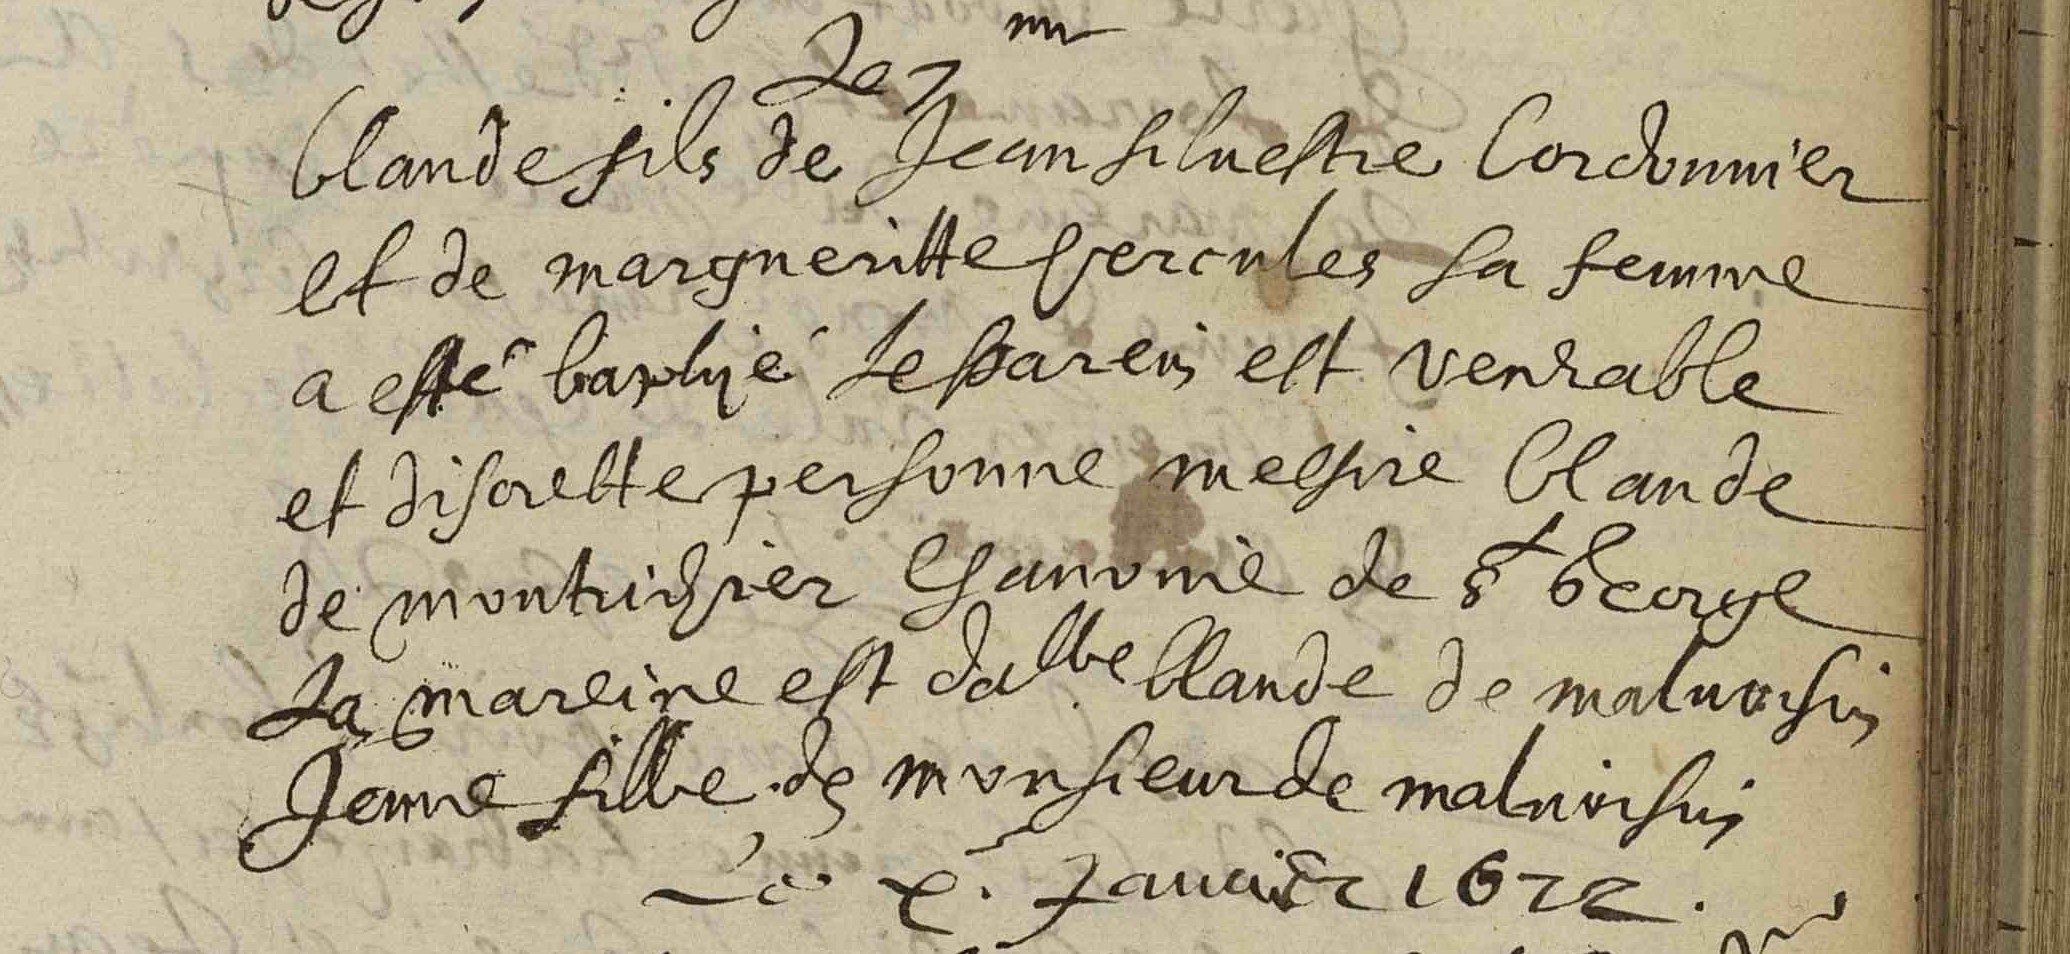 Le 7 me
Claude fils de Jean siluestre Cordonnier
et de margueritte hercules sa femme
a esté baptizé Le parein est venrable
et discrette personne messire Claude
de montrichier Chanonie de st George
La mareine est dalle Claude de maluoisin
Jeune fille de monsieur de maluoisin
Le x. Januier 1622.